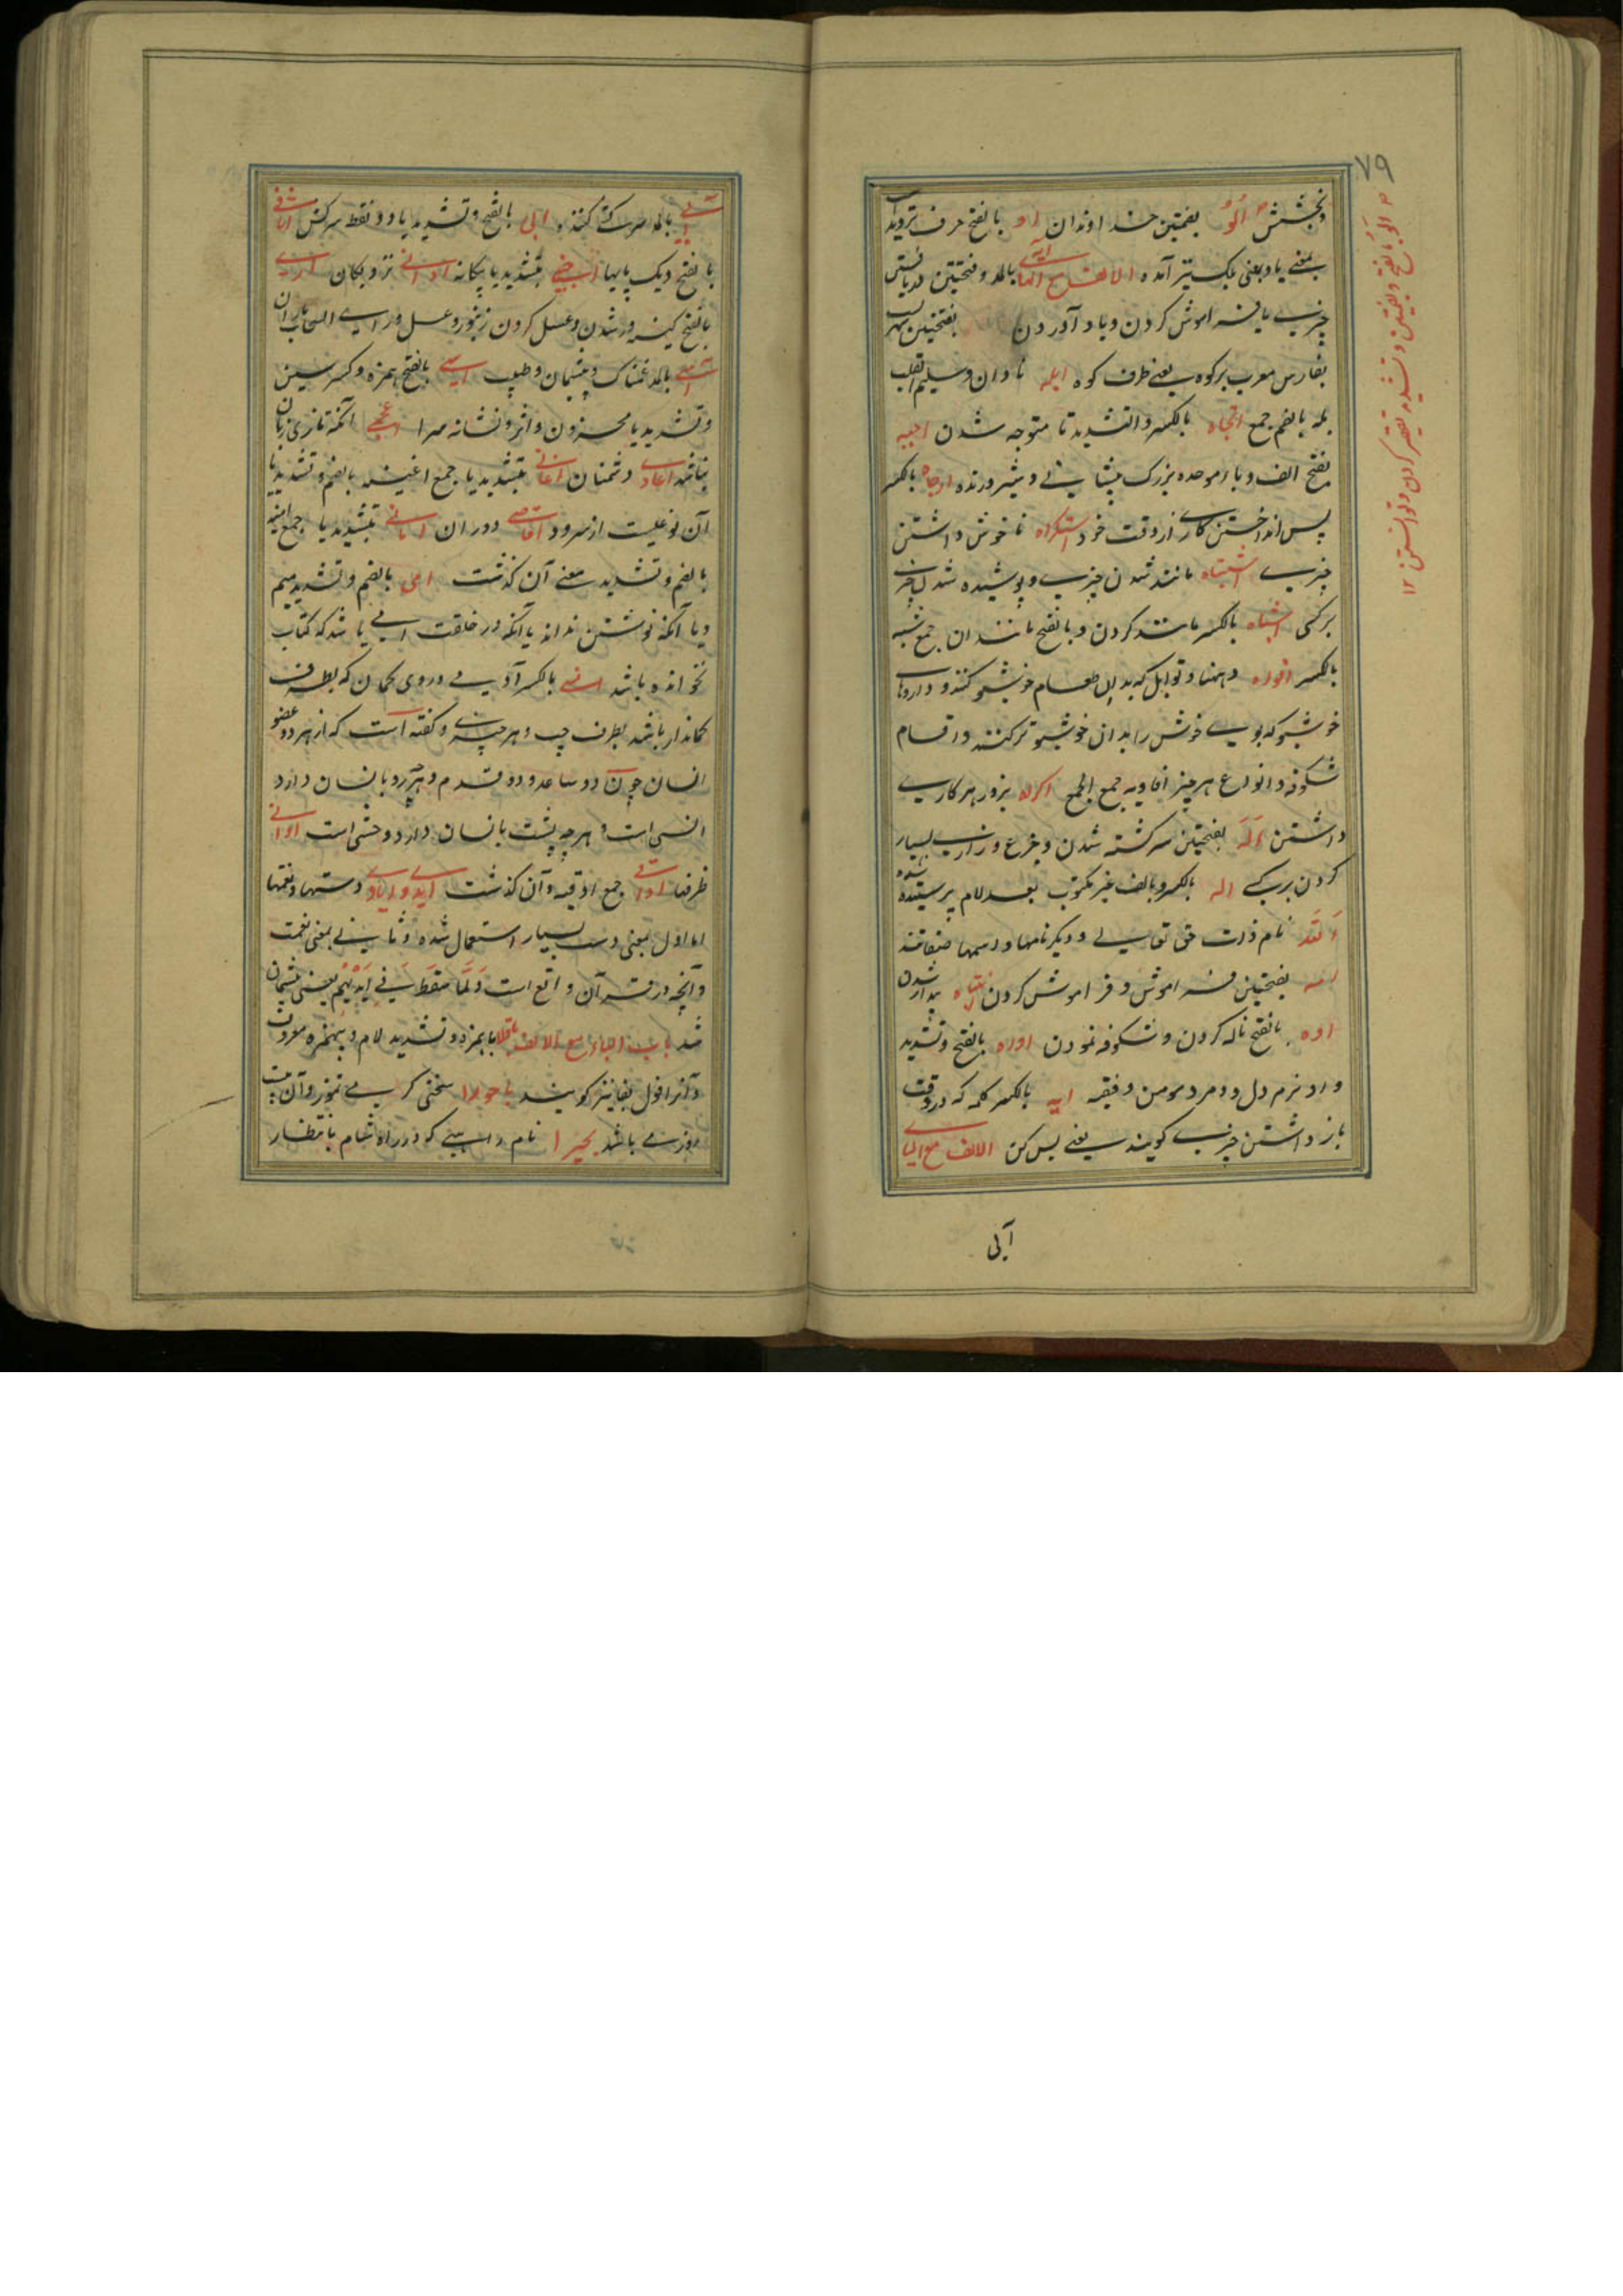 ۷۹
وبخشش الو بضمتین خداوندان او بالفتح حرف تردید
بمعنی یا وبمعنی بلکه نیز آمده الالف مع الهاء بالمد وفتحتین دریافتن
چیزی یا فراموش کردن ویاد آوردن بفتحتین
بفارس معرب برکوه یعنی طرف کوه ابله نادان وسلیم القلب
بله بالضم جمع اتجاه بالکسر والتشدید تا متوجه شدن اجبه
بفتح الف وباء موحده بزرک پیشانی وشیر درنده ارجاه بالکسر
پس انداختن کاری از وقت خود استکراه ناخوش داشتن
چیزی اشتباه مانند شدن چیزی وپوشیده شدن چیزی
برکسی اشباه بالکسر مانند کردن وبالفتح مانندان جمع شبه
بالکسر افواه دهنها وتوابل که بدان طعام خوشبو کنند وداروهای
خوشبو که بوی خوش را بدان خوشبوتر کنند واقسام
شکوفه وانواع هر چیز افاویه جمع الجمع اکراه بزور بر کاری
داشتن اله بفتحتین سرکشته شدن وجزع وزاری بسیار
کردن بر کسی اله بالکسر وبالف غیر مکتوب بعد لام پرستیده شده
الله نام ذات حق تعالی ودیگر نامها واسمها صفاتند
امه بفتحتین فراموش وفراموش کردن انتباه بیدار شدن
اوه بالفتح ناله کردن وشکوفه نمودن اواه بالفتح وتشدید
واو نرم دل ومرد مومن وفقیه ایه بالکسر کلمه که در وقت
باز داشتن چیزی کویند یعنی بس کن الالف مع الیاء
آبی
آبی بالمد سرکشی کننده ابی بالفتح وتشدید یا دو نقط سرکش اثافی
بالفتح دیک پایها اجنبی بتشدید یا بیکانه ادانی نزدیکان اری
بالفتح کینه ور شدن وعسل کردن زنبور وعسل واری السحاب باران
آسی بالمد غمناک وپشیمان وطبیب اسی بالفتح همزه وکسر سین
وتشدید یا محزون واثر ونشانه سرا اعجمی آنکه تازی زبان
نباشد اعادی دشمنان اغانی بتشدید یا جمع اغنیه بالضم وتشدید یا
آن نوعیست از سرود اقاصی دوران امانی بتشدید یا جمع امنیه
بالضم وتشدید معنی آن گذشت امی بالضم وتشدید میم
ویا آنکه نوشتن نداند یا آنکه در خلقت امی باشد که کتاب
نخوانده باشد انسی بالکسر آدمی وروی کمان که بطرف
کماندار باشد بطرف چپ وهر چیزی وکفته است که از هر دو عضو
انسان چون دو ساعد ودو قدم وهر چه رو بانسان دارد
انسی است وهر چه پشت بانسان دارد وحشی است اوانی
ظرفها اواقی جمع اوقیه وآن گذشت ایدی وایادی دستها ونعمتها
اما اول بمعنی دست بسیار استعمال شده وثانی بمعنی نعمت
وآنچه در قرآن واقع است ولما سقط فی ایدیهم یعنی پشیمان
شد باب الباء مع الالف باقلا با بمزه وتشدید لام وبیهمزه معروف
وآنرا فول بفا نیز کویند باحورا سختی کرمی تموز وآن
روزی باشد بحیرا نام راهبی که در راه شام بانتظار